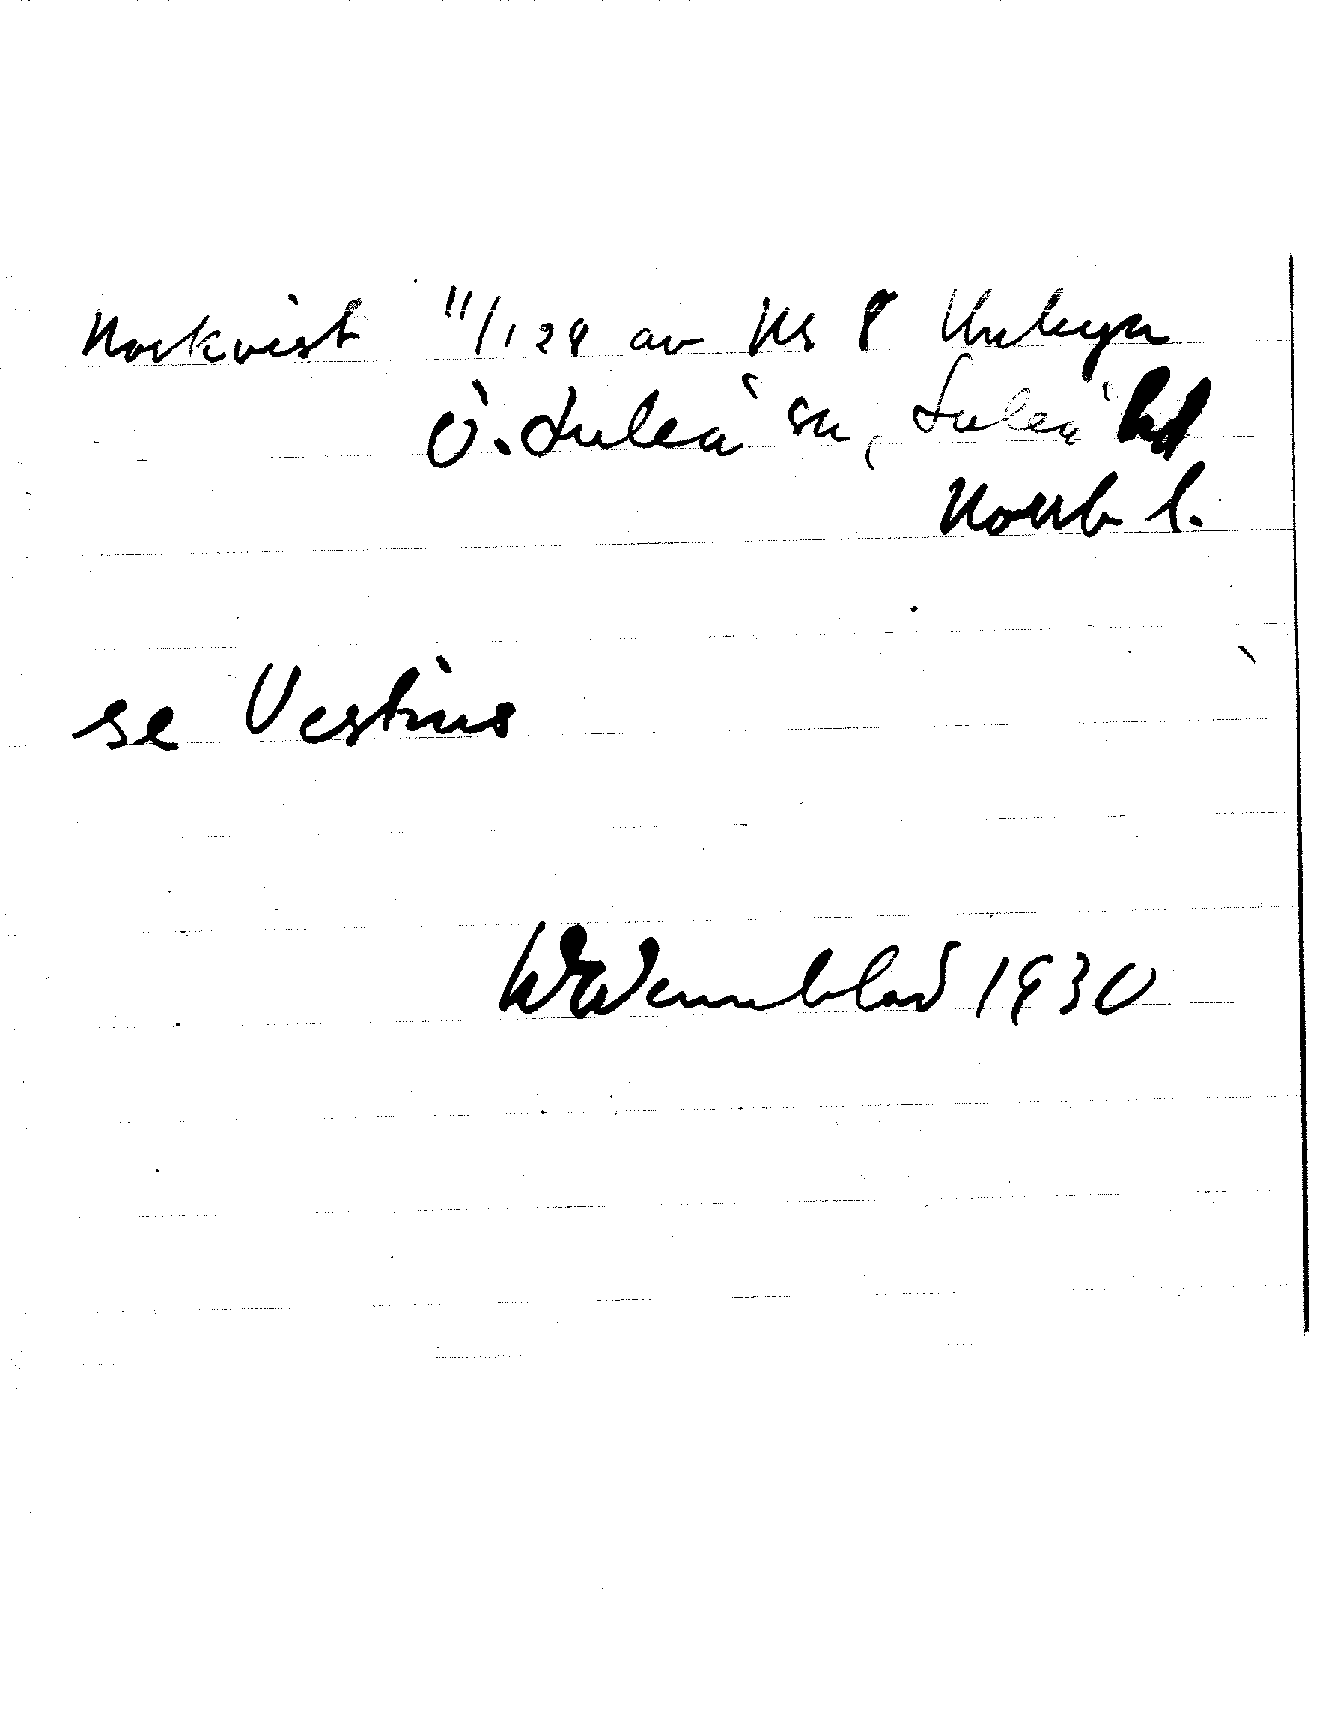 Norkvist 11/128 av No 8 Unbyn
Ö. Luleå sn, Luleå hd
Norrb l.
se Vestins
Wennblad 1930